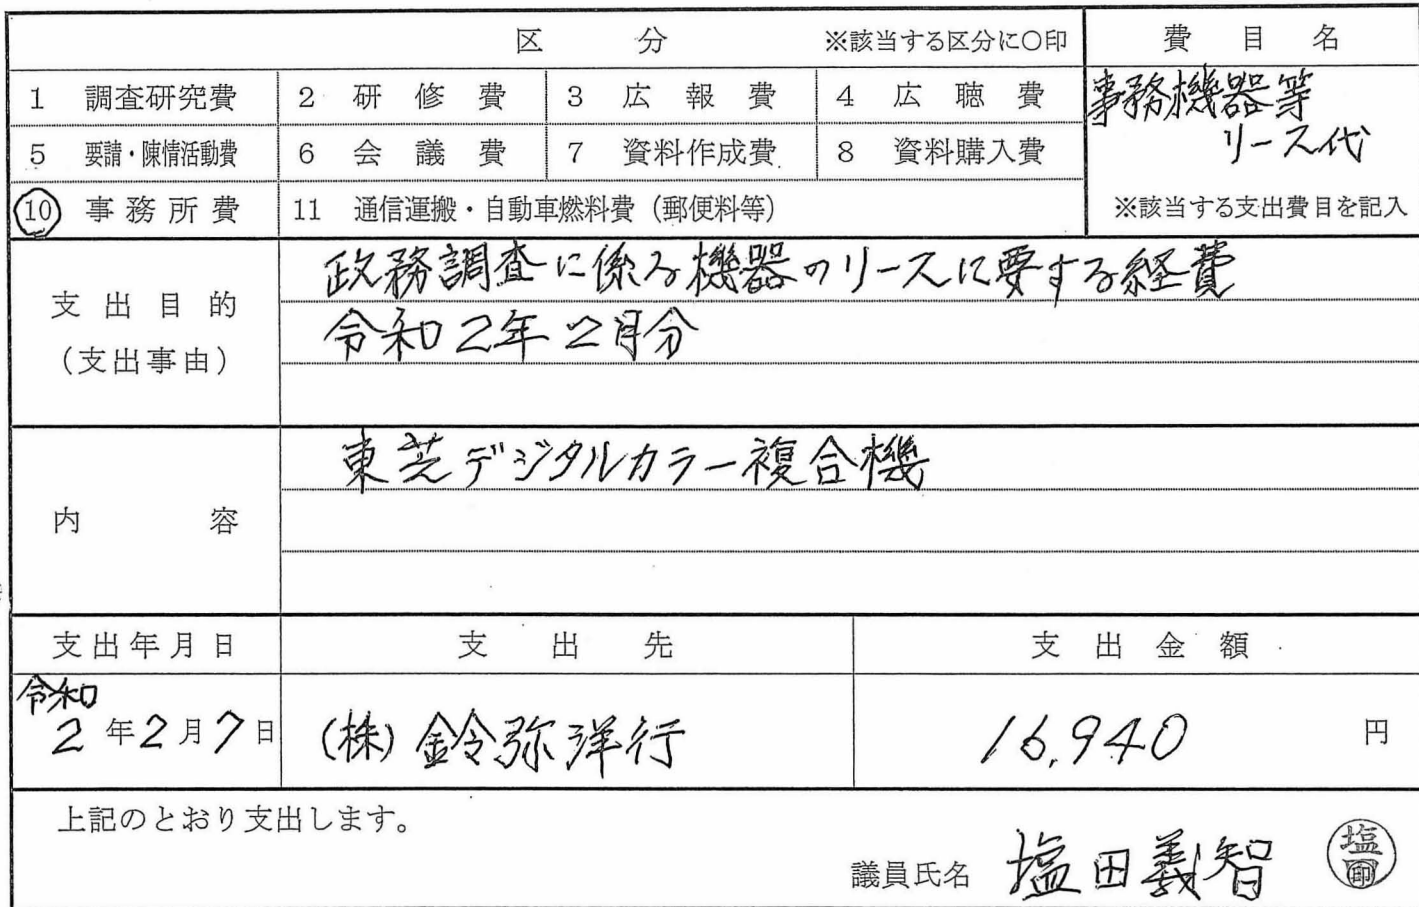 区 分 ※該当する区分に○印 費 目 名
1 調査研究費 2 研 修 費 3 広 報 費 4 広 聴 費 事務機器等
リース代
5 要請・陳情活動費 6 会 議 費 7 資料作成費 8 資料購入費
10 事務所費 11 通信運搬・自動車燃料費（郵便料等） ※該当する支出費目を記入
支出目的
（支出事由）
政務調査に係る機器のリースに要する経費
令和2年2月分
内 容
東芝デジタルカラー複合機
支出年月日 支 出 先 支 出 金 額
令和
2年2月7日 (株)鈴弥洋行 16,940 円
上記のとおり支出します。
議員氏名 塩田義智 塩印